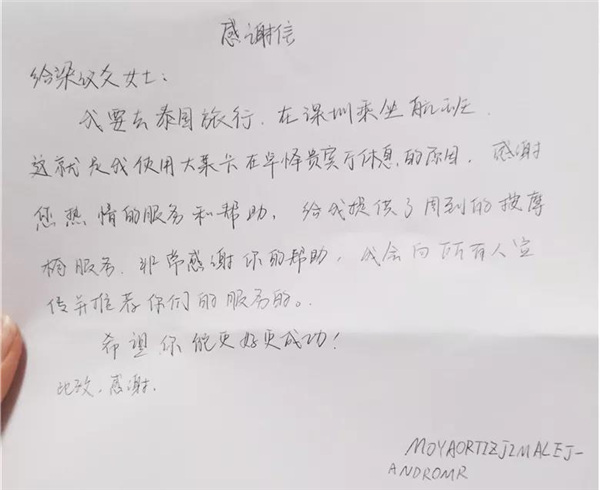 感谢信
给梁议文女士：
我要去泰国旅行，在深圳乘坐航班，
这就是我使用大莱卡在早怿贵宾厅休息的原因，感谢
您热情的服务和帮助，给我提供了周到的按摩
椅服务，非常感谢你的帮助，我会向所有人宣
传并推荐你们的服务的。
希望你能更好更成功！
此致，感谢.
MOYAORTIZJIMALEJ-
ANDROMR